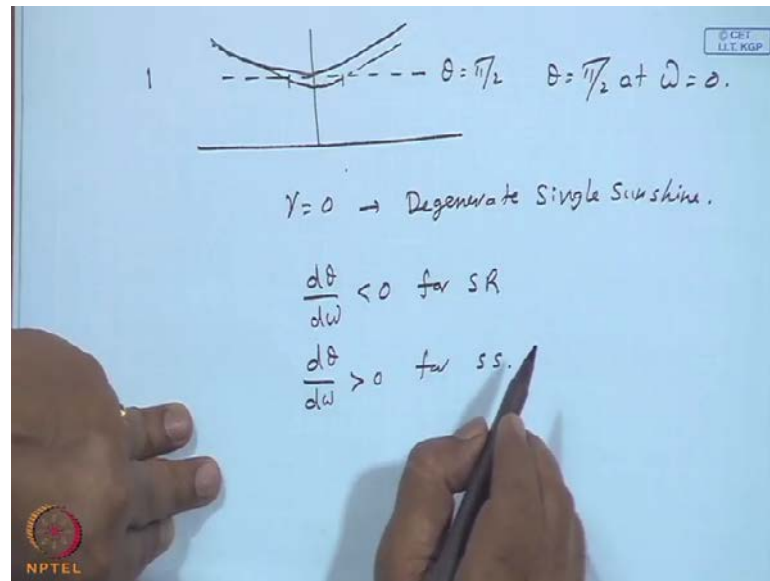 © CET
I.I.T. KGP
1
θ = π/2 θ = π/2 at ω = 0.
γ = 0 → Degenerate Single Sunshine.
dθ/dω < 0 for SR
dθ/dω > 0 for SS.
NPTEL